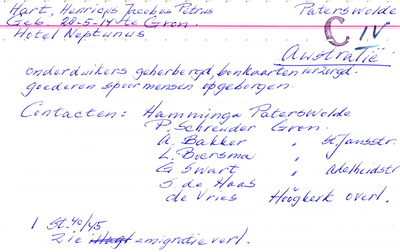 Hart, Henricus Jacobus Petrus Paterswolde
Geb. 20-5-14 te Gron.
Hotel Neptunus C IV
Australië
onderduikers geherbergd, bonkaarten verzorgd.
goederen spoormensen opgeborgen.
Contacten: Hamminga Paterswolde
P. Schreuder Gron.
A. Bakker " St Jansstr.
L. Biersma "
G. Swart " Adelheidstr
J. de Haas
de Vries Hoogkerk overl.
1 St. 40/45
Zie emigratie verl.